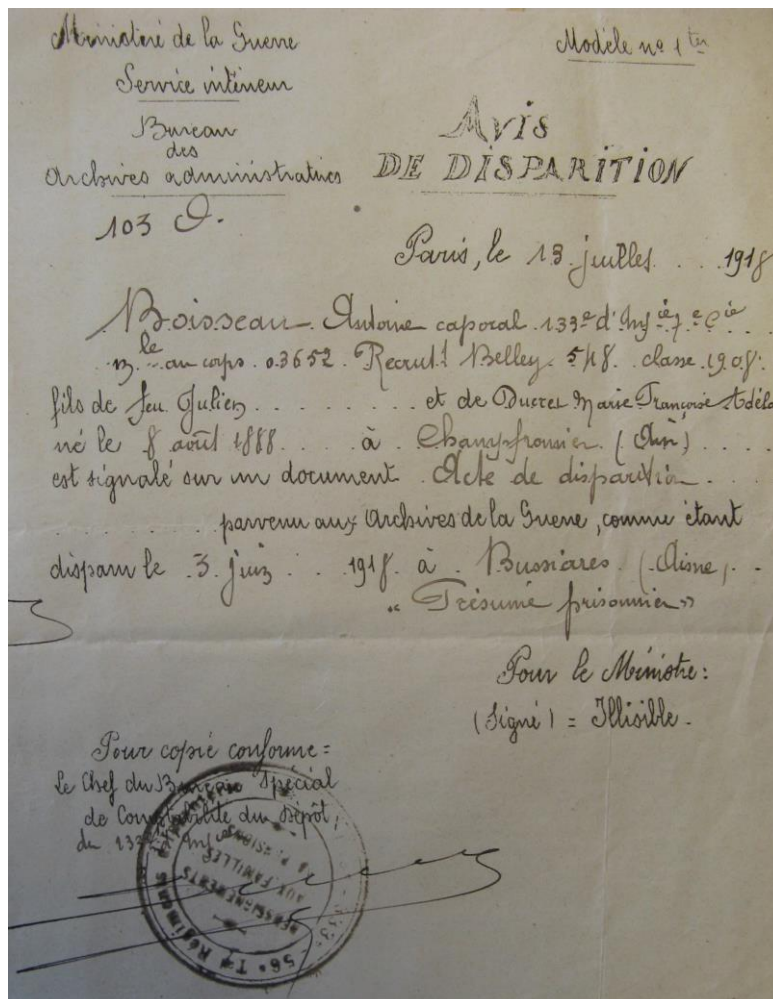 Ministère de la Guerre
Modèle nº 1 ter
Service intérieur
Bureau
des
Archives administratives
103 D.
Avis
DE DISPARITION
Paris, le 13 juillet . . 1918
Boisseau. Antoine caporal 133e d'Infie 7e Cie . .
nº au corps 03652. Recrut! Belley 548. classe 1908.
fils de feu Julien . . . . . . . . . et de Ducret Marie Françoise Adéla
né le 8 août 1888 . . . à . Champfromier. (Ain) . . . .
est signalé sur un document . Acte de disparition . .
. . . . . . . parvenu aux Archives de la Guerre, comme étant
disparu le . 3. juin . . 1918. à . Bussiares. (Aisne) . .
"Présumé prisonnier"
Pour le Ministre:
(Signé) = Illisible.
Pour copie conforme =
Le Chef du Bureau Spécial
de Comptabilité du Dépôt,
du 133e Inf
RENSEIGNEMENTS
AUX FAMILLES
& PENSIONS
56e Tal Régiment d'Infanterie 133e